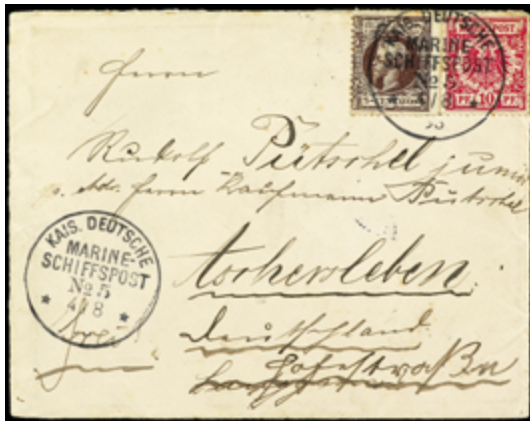 KAIS. DEUTSCHE
MARINE-
SCHIFFSPOST
No 5
* 4/8 *
95
10 PF
Herrn
Rudolf Pütschel junior
p. Adr. Herrn Kaufmann Pütschel
Aschersleben
Deutschland
KAIS. DEUTSCHE
MARINE-
SCHIFFSPOST
No 5
* 4/8 *